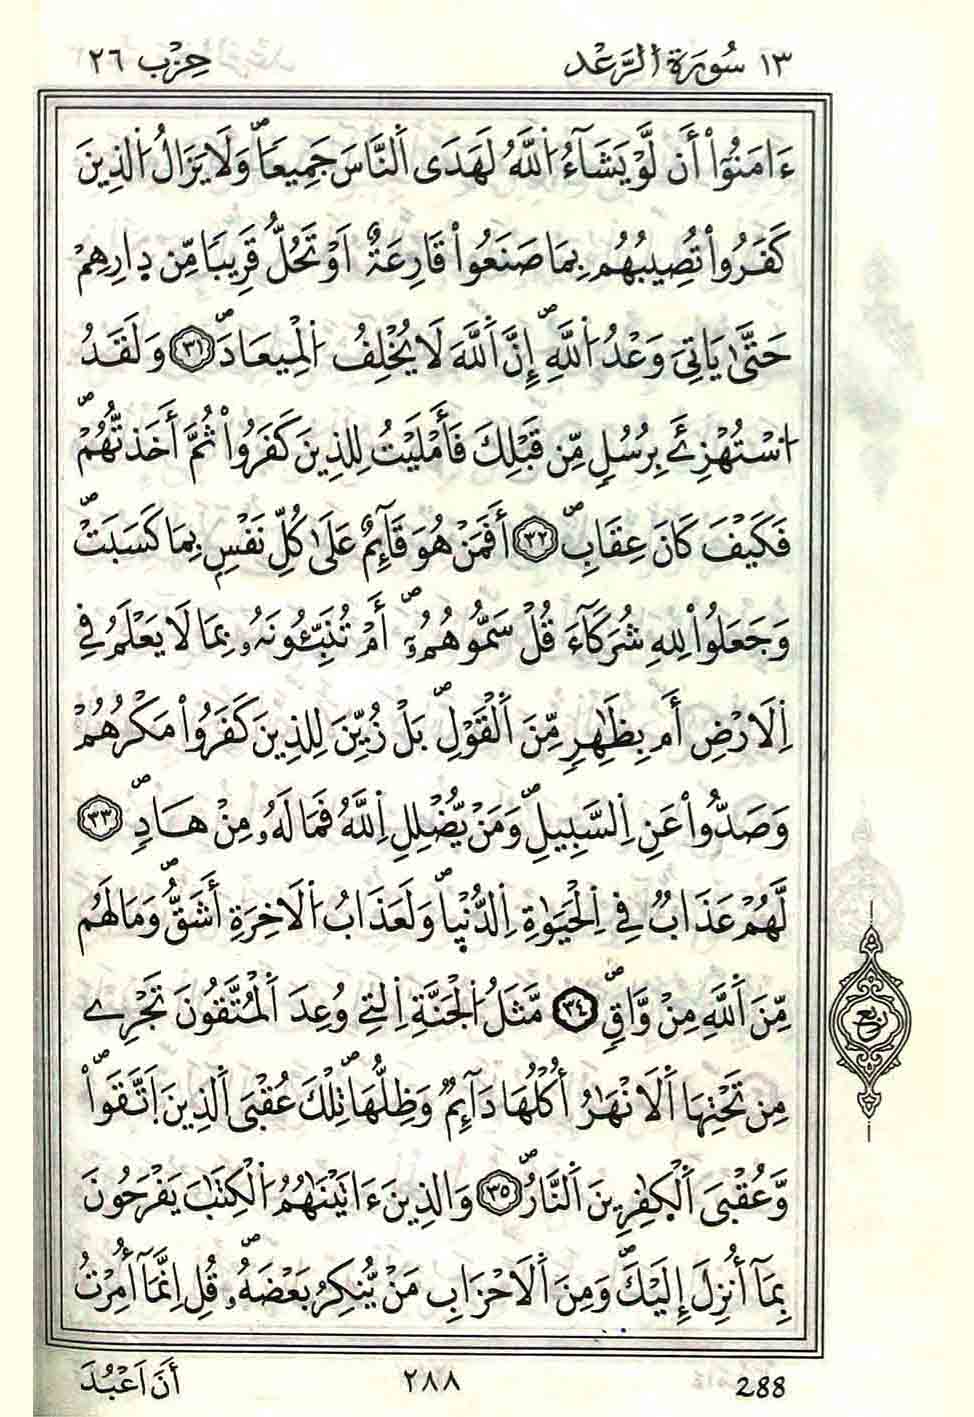 ١٣ سُورَةُ الرَّعْدِ
حِزْب ٢٦
ءَامَنُوٓاْ أَن لَّوْ يَشَآءُ اُ۬للَّهُ لَهَدَى اَ۬لنَّاسَ جَمِيعاٗۖ وَلَا يَزَالُ اُ۬لذِينَ
كَفَرُواْ تُصِيبُهُم بِمَا صَنَعُواْ قَارِعَةٌ اَوْ تَحُلُّ قَرِيباٗ مِّن د۪ارِهِمْ
حَتَّىٰ يَاتِيَ وَعْدُ اُ۬للَّهِۖ إِنَّ اَ۬للَّهَ لَا يُخْلِفُ اُ۬لْمِيعَادَۖ ٣١ وَلَقَدُ
اُ۟سْتُهْزِۓَ بِرُسُلٖ مِّن قَبْلِكَ فَأَمْلَيْتُ لِلذِينَ كَفَرُواْ ثُمَّ أَخَذتُّهُمْۖ
فَكَيْفَ كَانَ عِقَابِۖ ٣٢ أَفَمَنْ هُوَ قَآئِمٌ عَلَىٰ كُلِّ نَفْسِۢ بِمَا كَسَبَتْۖ
وَجَعَلُواْ لِلهِ شُرَكَآءَ قُلْ سَمُّوهُمُۥٓۖ أَمْ تُنَبِّـُٔونَهُۥ بِمَا لَا يَعْلَمُ فِي
اِ۬لَارْضِ أَم بِظَٰهِرٖ مِّنَ اَ۬لْقَوْلِۖ بَلْ زُيِّنَ لِلذِينَ كَفَرُواْ مَكْرُهُمْ
وَصَدُّواْ عَنِ اِ۬لسَّبِيلِۖ وَمَنْ يُّضْلِلِ اِ۬للَّهُ فَمَا لَهُۥ مِنْ هَادٖۖ ٣٣
لَّهُمْ عَذَابٞ فِي اِ۬لْحَيَوٰةِ اِ۬لدُّنْي۪اۖ وَلَعَذَابُ اُ۬لَاخِرَةِ أَشَقُّۖ وَمَا لَهُم
مِّنَ اَ۬للَّهِ مِنْ وَّاقٖۖ ٣٤ مَّثَلُ اُ۬لْجَنَّةِ اِ۬لتِے وُعِدَ اَ۬لْمُتَّقُونَ تَجْرِے
مِن تَحْتِهَا اَ۬لَانْهَٰرُ أُكْلُهَا دَآئِمٞ وَظِلُّهَاۖ تِلْكَ عُقْبَى اَ۬لذِينَ اَ۪تَّقَواْ
وَّعُقْبَى اَ۬لْكٰ۪فِرِينَ اَ۬لنَّارُۖ ٣٥ وَالذِينَ ءَاتَيْنَٰهُمُ اُ۬لْكِتَٰبَ يَفْرَحُونَ
بِمَآ أُنزِلَ إِلَيْكَۖ وَمِنَ اَ۬لَاحْزَابِ مَنْ يُّنكِرُ بَعْضَهُۥۖ قُلِ اِنَّمَآ أُمِرْتُ
ربع
أَنَ اَعْبُدَ
٢٨٨
288